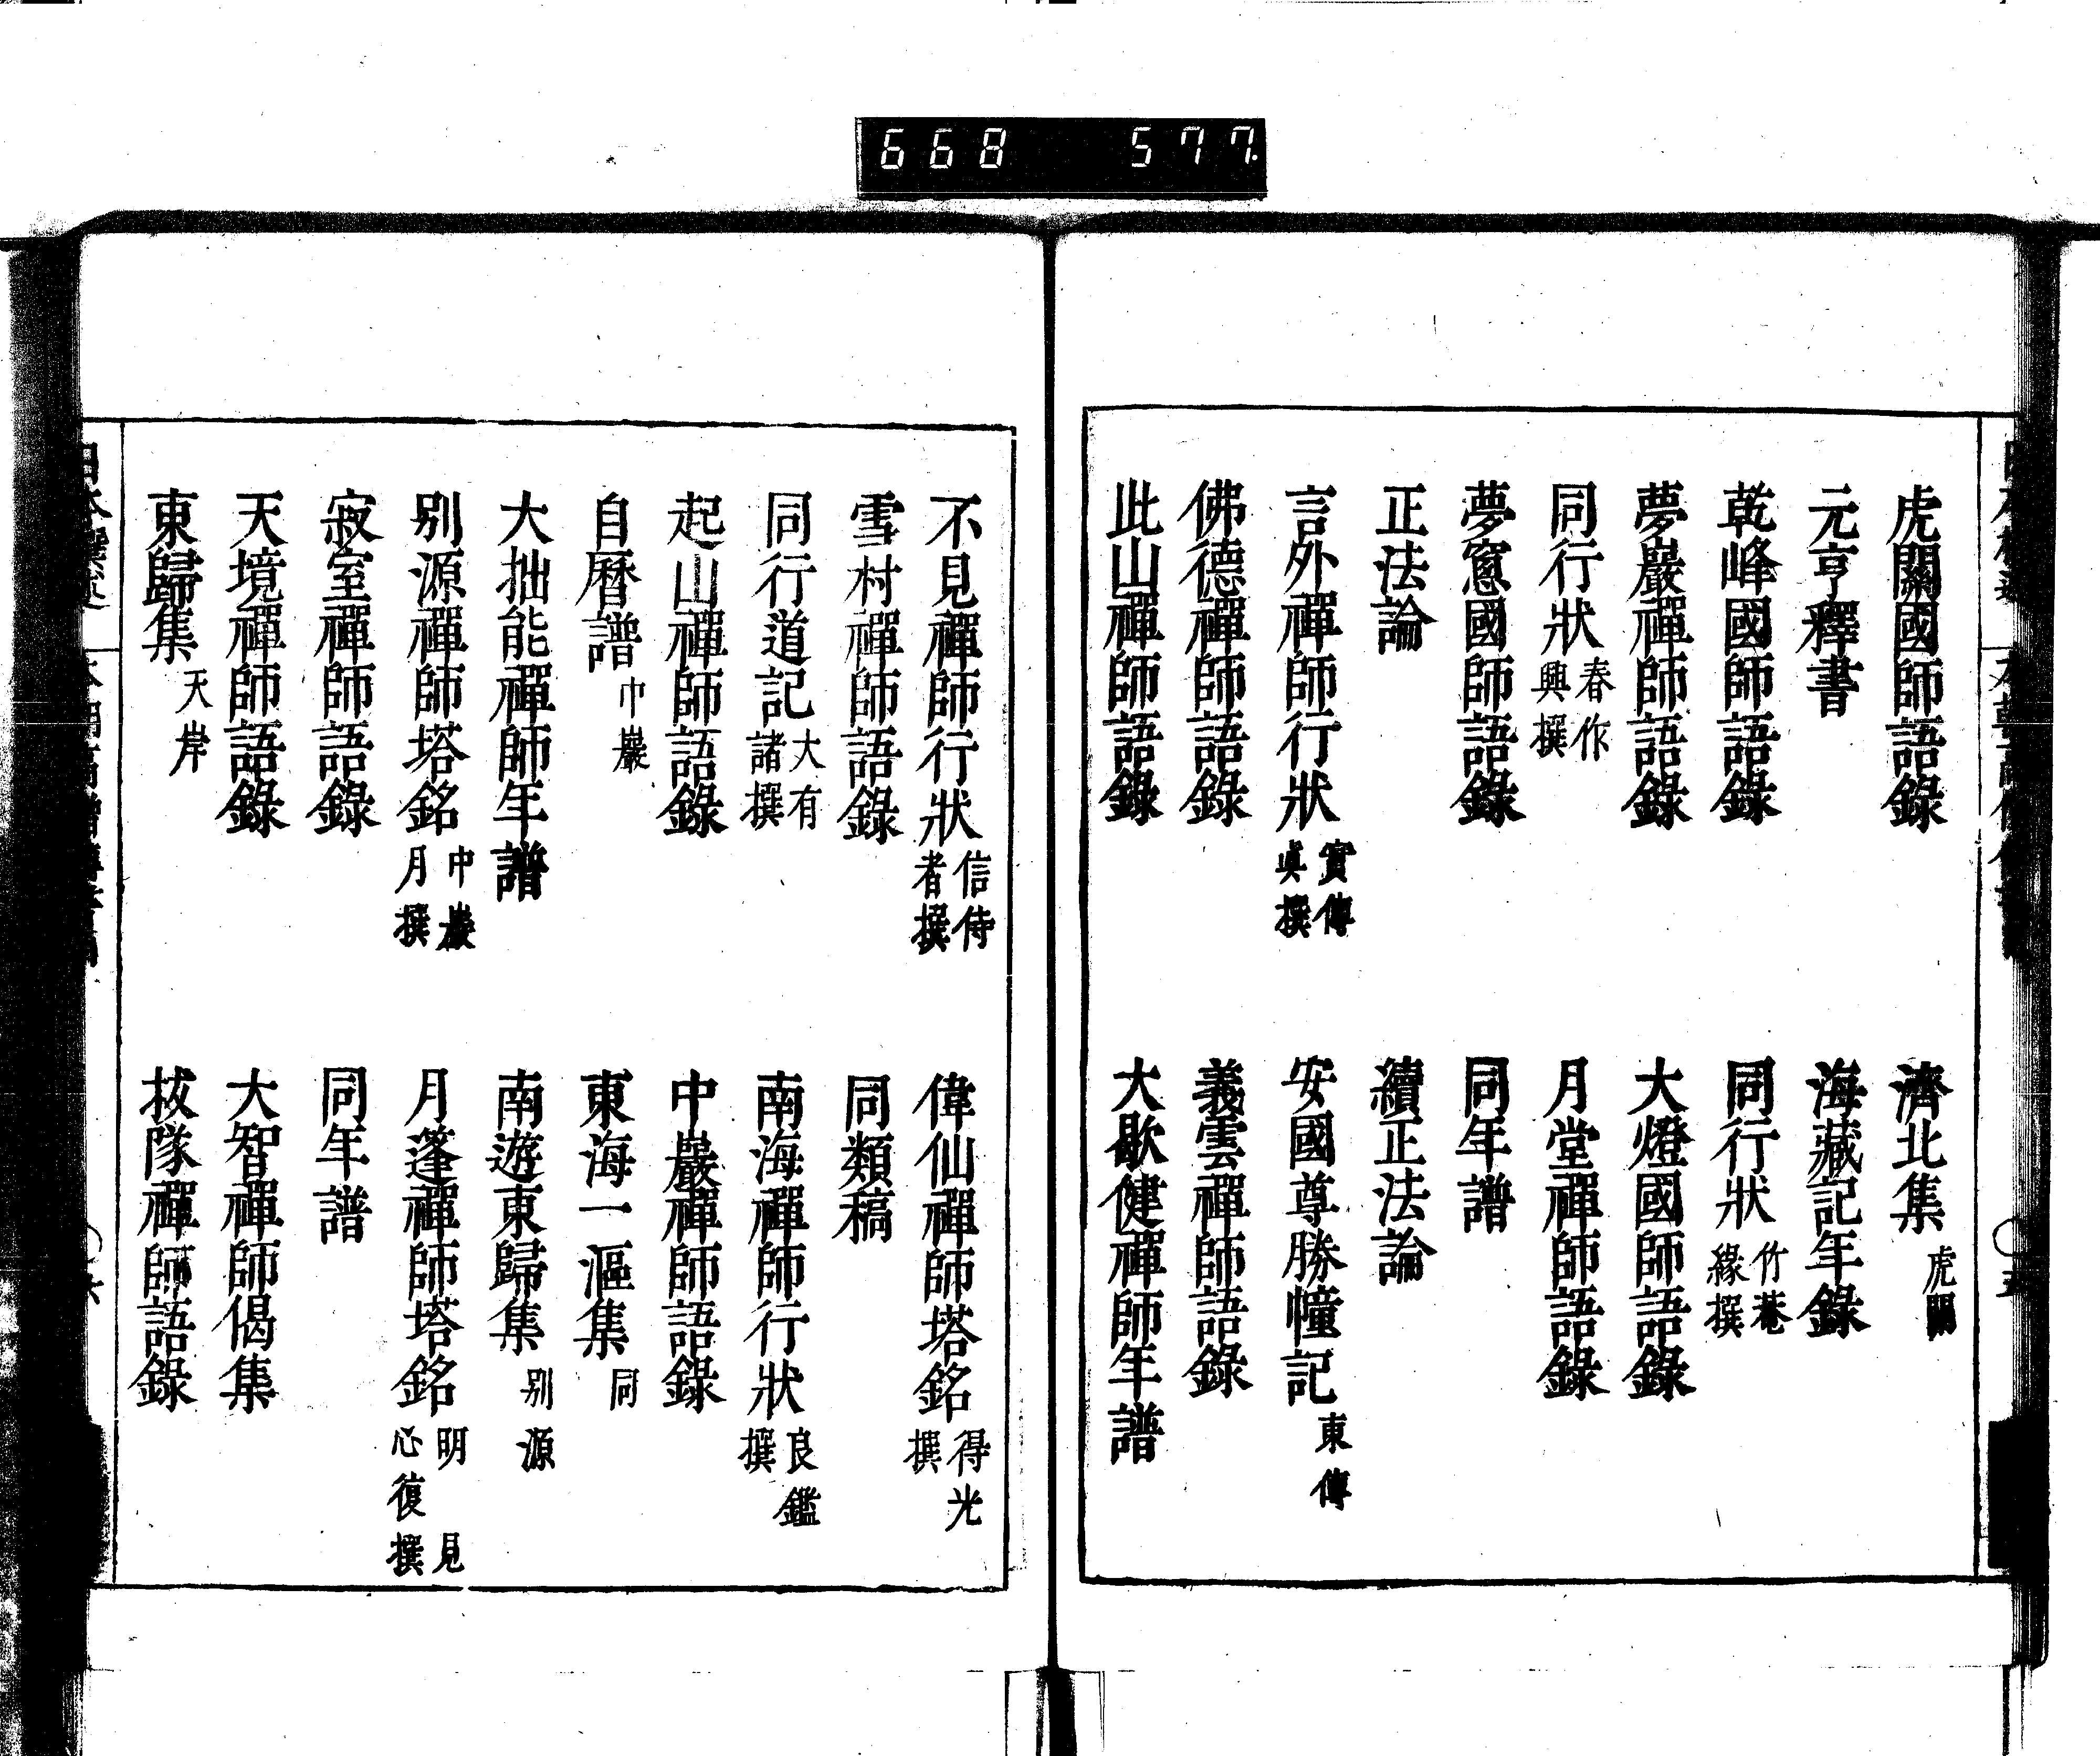 668 577.
虎關國師語錄 濟北集 虎關
元亨釋書 海藏記年錄
乾峰國師語錄 同行狀 竹菴緣撰
夢巖禪師語錄 大燈國師語錄
同行狀 春作興撰 月堂禪師語錄
夢窻國師語錄 同年譜
正法論 續正法論
言外禪師行狀 實傳眞撰 安國尊勝幢記 東傳
佛德禪師語錄 義雲禪師語錄
此山禪師語錄 大歇健禪師年譜
不見禪師行狀 信侍者撰 偉仙禪師塔銘 得光撰
雪村禪師語錄 同類稿
同行道記 大有諸撰 南海禪師行狀 良鑑撰
起山禪師語錄 中巖禪師語錄
自曆譜 中巖 東海一漚集 同
大拙能禪師年譜 南遊東歸集 别源
别源禪師塔銘 中巖月撰 月蓬禪師塔銘 明見心復撰
寂室禪師語錄 同年譜
天境禪師語錄 大智禪師偈集
東歸集 天岸 拔隊禪師語錄